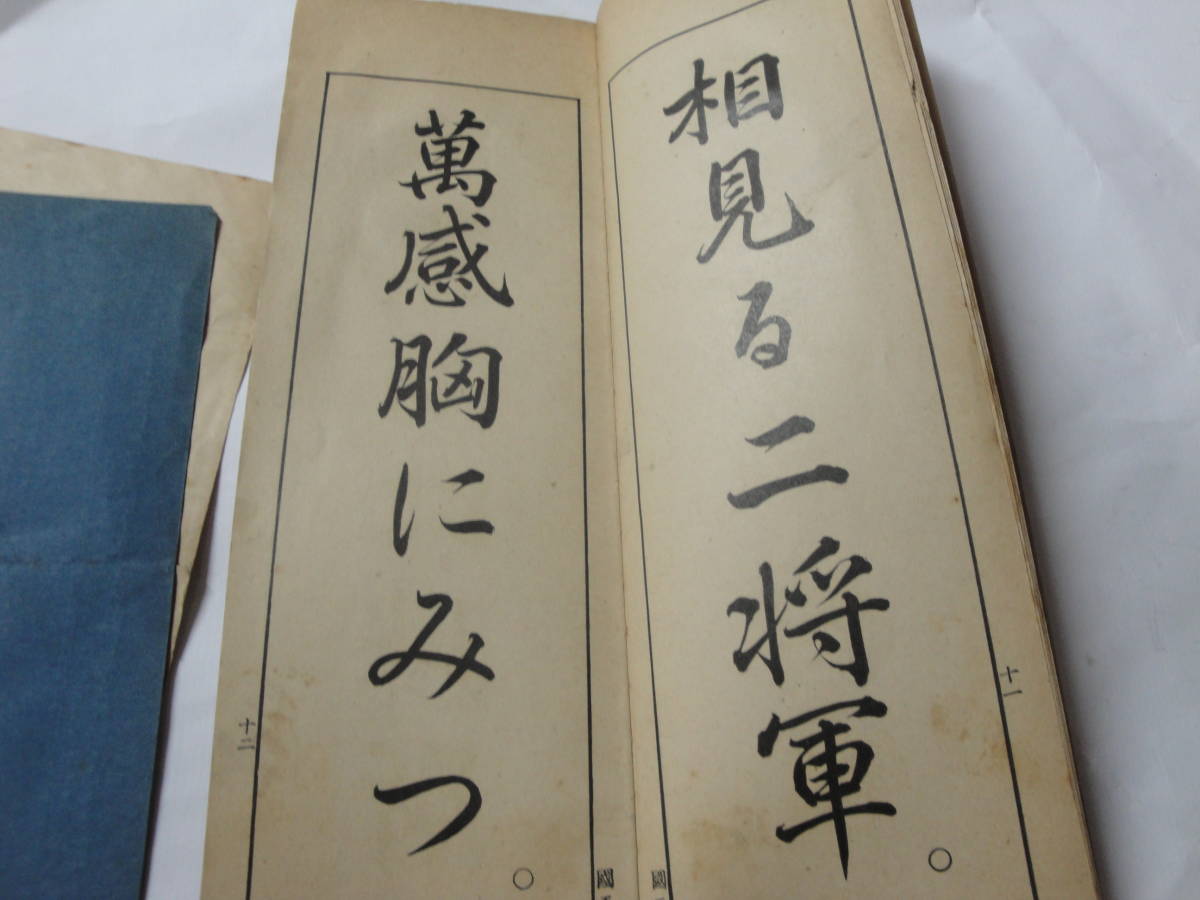 相見る二将軍
○
十一
國
萬感胸にみつ
○
十二
國